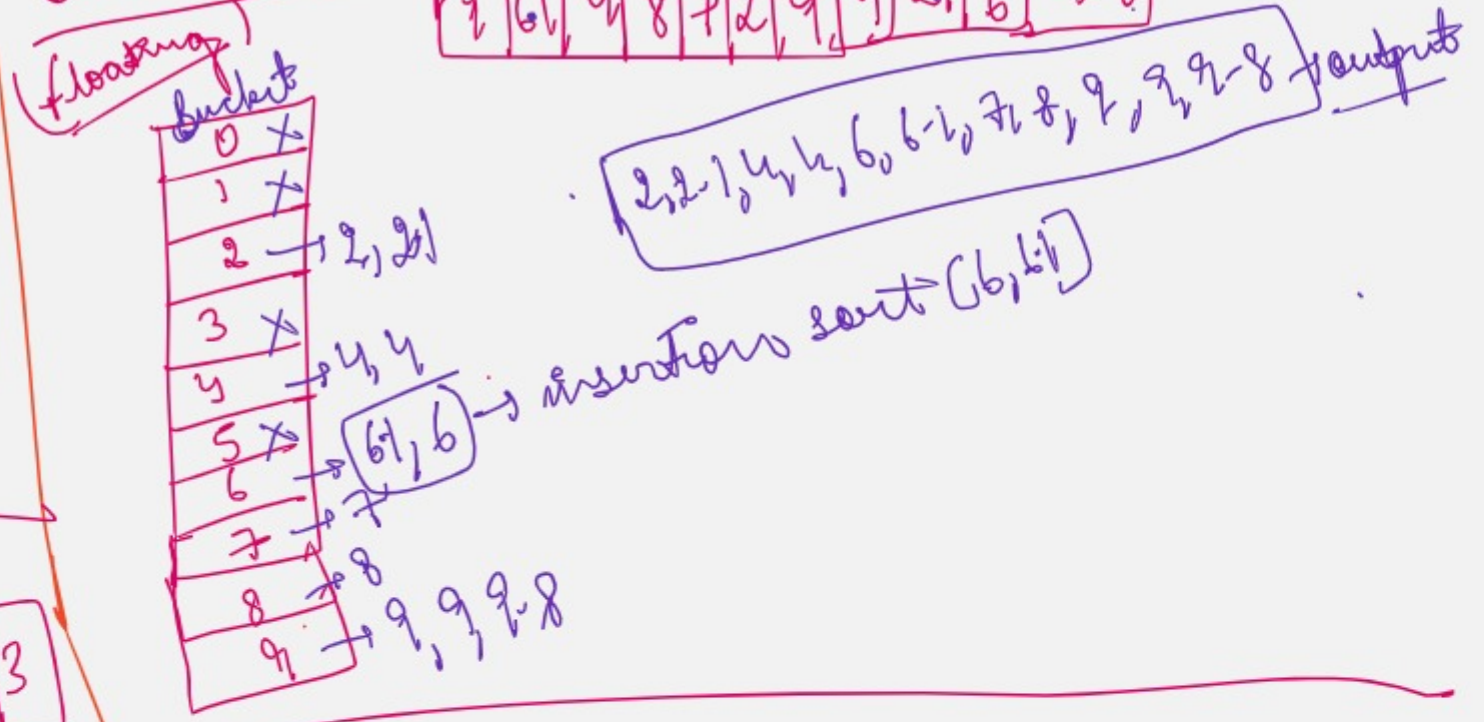 floating
bucket
0 X
1 X
2 → 2, 2.1
3 X
4 → 4, 4
5 X
6 → 6.1, 6 → insertion sort (6, 6.1)
7 → 7
8 → 8
9 → 9, 9, 9.8
2, 2.1, 4, 4, 6, 6.1, 7, 8, 9, 9, 9.8 → output
3